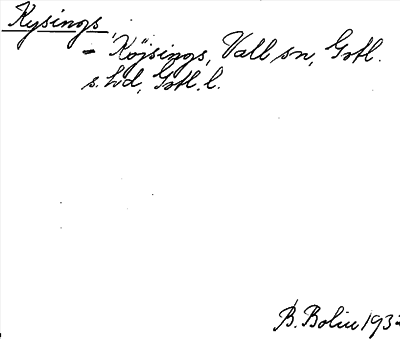 Kysings
– Köjsings, Vall sn, Gotl.
s. hd, Gotl. l.
B. Bolin 193